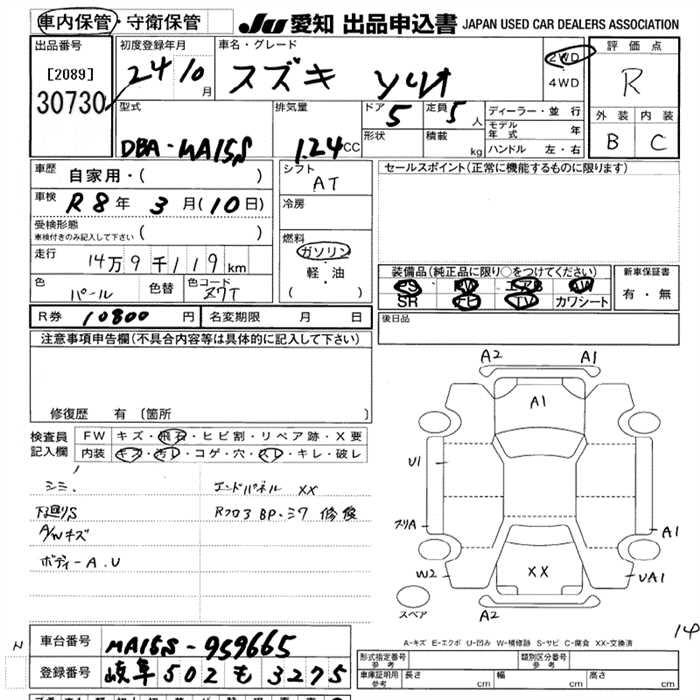 車内保管・守衛保管
JU 愛知 出品申込書 JAPAN USED CAR DEALERS ASSOCIATION
出品番号
[2089]
30730
初度登録年月
24 10月
車名・グレード
スズキ ソリオ
2WD
4WD
評価点
R
外装 内装
B C
型式
DBA-MA15S
排気量
1.24CC
ドア 5
形状
定員 5人
積載 kg
ディーラー・並行
モデル年式 年
ハンドル 左・右
車歴
自家用・( )
車検
R8年 3月(10日)
受検形態
車検付きのみ記入して下さい ( )
走行
14万9千119km
色 パール
色替
色コード Z7T
シフト
AT
冷房
燃料
ガソリン
・
軽・油
( )
セールスポイント(正常に機能するものに限ります)
装備品(純正品に限り○をつけてください)
PS PW エアB AW
SR ナビ TV カワシート
新車保証書
有・無
後日品
R券 10800円
名変期限 月 日
注意事項申告欄(不具合内容等は具体的に記入して下さい)
修復歴 有 〔箇所 〕
検査員記入欄
FW キズ・飛石・ヒビ割・リペア跡・X要
内装 キズ・汚レ・コゲ・穴・スレ・キレ・破レ
シミ.
エンドパネル XX
下廻りS
Rフロア BP・ミワ 修復
A/Wキズ
ボディーA.U
A2 A1
A1
U1
スリA
A1
W2
XX
UA1
スペア
A2
14
A-キズ E-エクボ U-凹み W-補修跡 S-サビ C-腐食 XX-交換済
N
車台番号 MA15S-959665
登録番号 岐阜502も3275
形式指定番号 参考
類別区分番号 参考
車庫証明用 参考
長さ cm
幅 cm
高さ cm